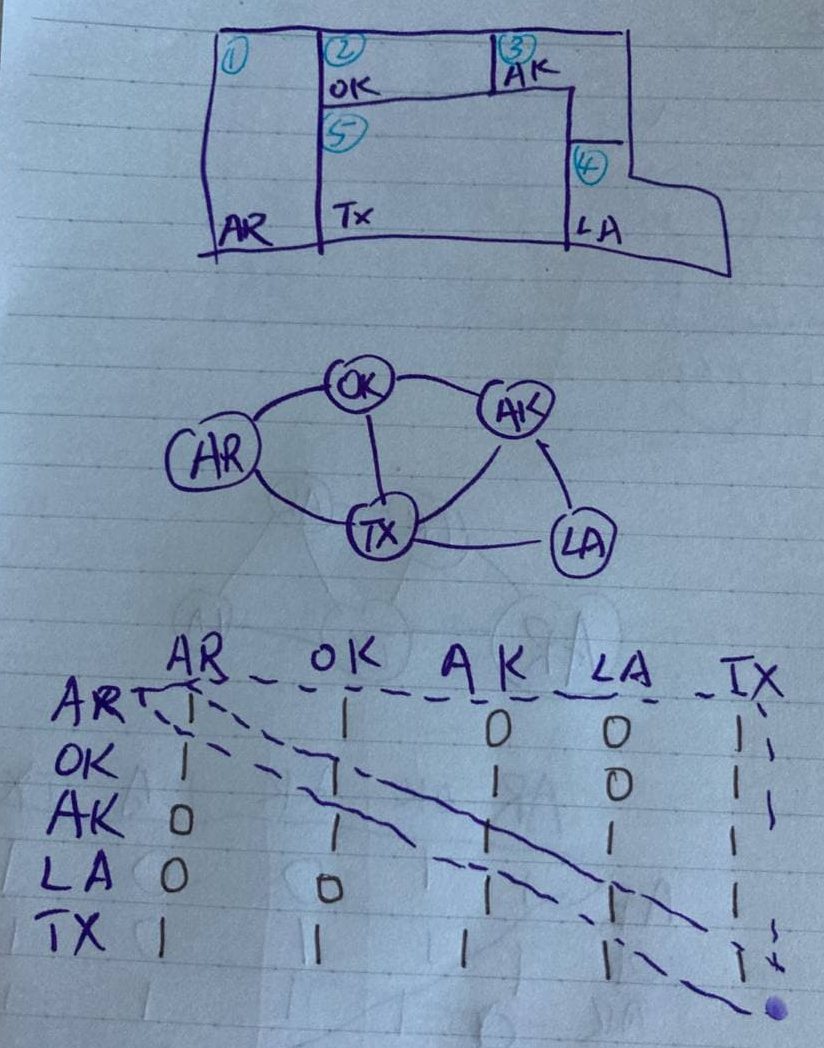 ① ② ③
OK AK
⑤
④
AR TX LA
OK AK
AR
TX LA
AR OK AK LA TX
AR 1 1 0 0 1
OK 1 1 1 0 1
AK 0 1 1 1 1
LA 0 0 1 1 1
TX 1 1 1 1 1